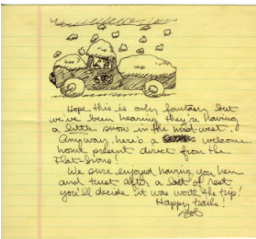 Hope this is only fantasy but
we've been hearing they're having
a little snow in the mid-west.
Anyway, here's a welcome
home present direct from the
Flat-irons!
We sure enjoyed having you here
and trust after a lot of rest
you'll decide it was worth the trip!
Happy trails!